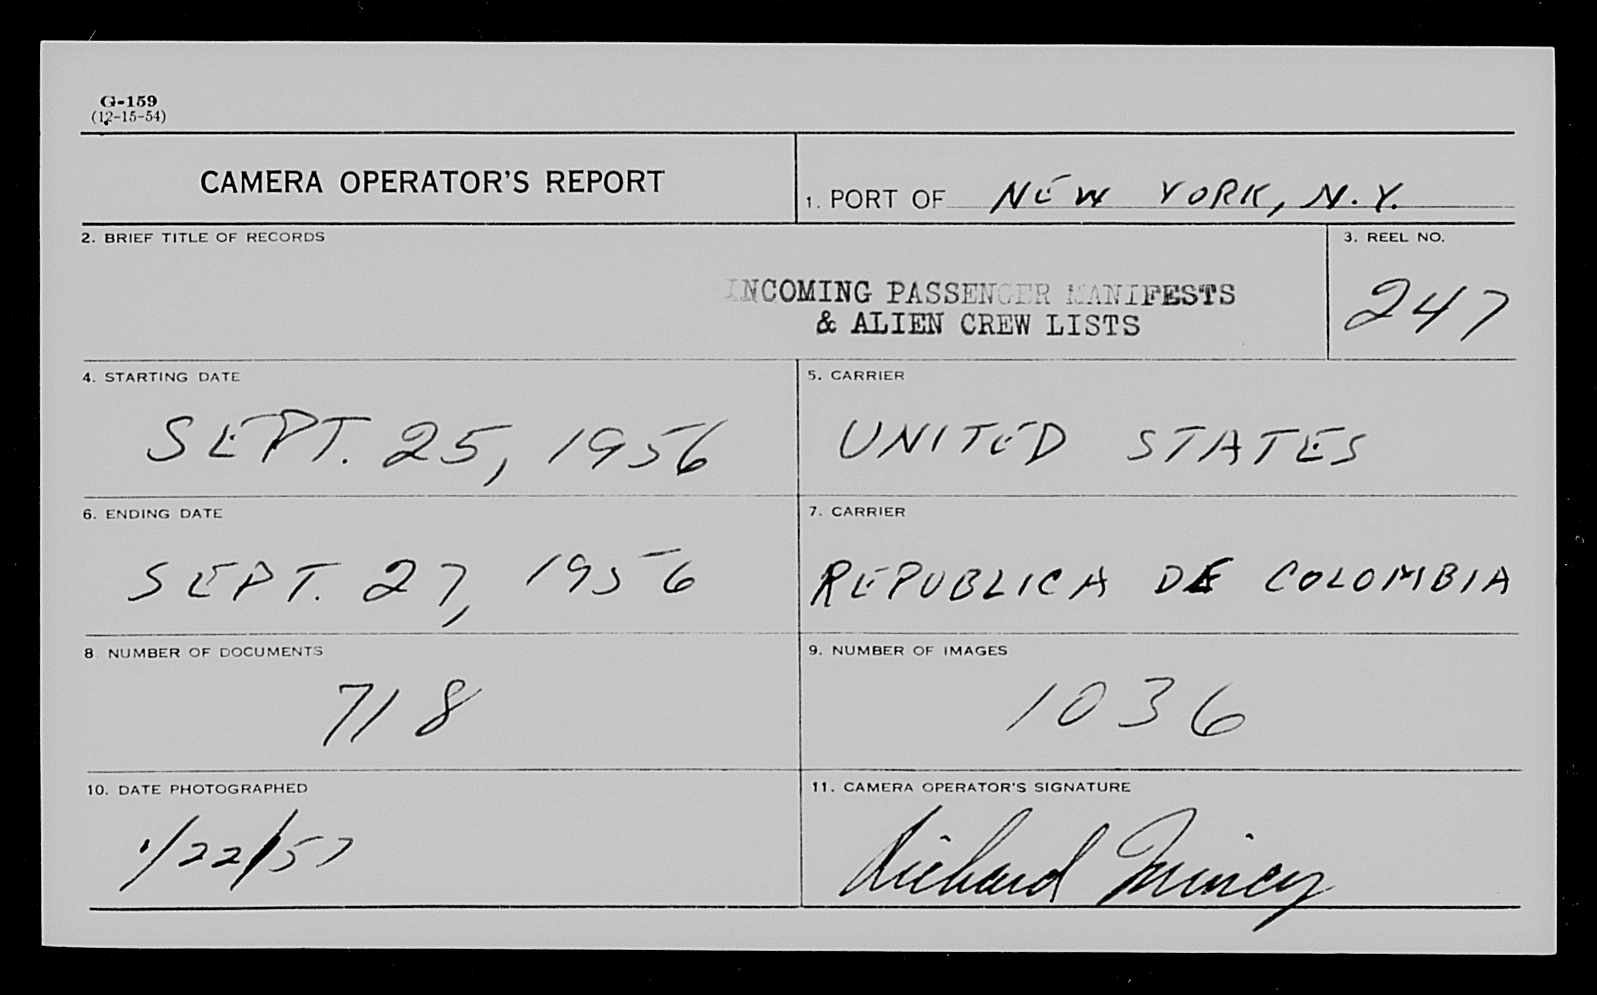 G-159
(12-15-54)
CAMERA OPERATOR'S REPORT
1. PORT OF NEW YORK, N.Y.
2. BRIEF TITLE OF RECORDS
INCOMING PASSENGER MANIFESTS
& ALIEN CREW LISTS
3. REEL NO.
247
4. STARTING DATE
SEPT. 25, 1956
5. CARRIER
UNITED STATES
6. ENDING DATE
SEPT. 27, 1956
7. CARRIER
REPUBLICA DE COLOMBIA
8 NUMBER OF DOCUMENTS
718
9. NUMBER OF IMAGES
1036
10. DATE PHOTOGRAPHED
1/22/57
11. CAMERA OPERATOR'S SIGNATURE
Richard